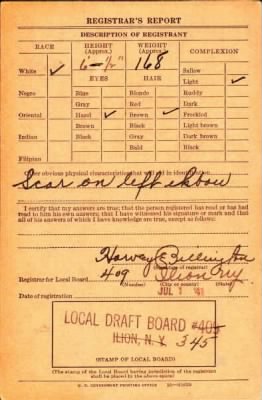 REGISTRAR'S REPORT
DESCRIPTION OF REGISTRANT
RACE HEIGHT (Approx.) WEIGHT (Approx.) COMPLEXION
6'-½" 168 Sallow
White ✓ EYES HAIR Light ✓
Negro Blue Blonde Ruddy
Gray Red Dark
Oriental Hazel ✓ Brown ✓ Freckled
Brown Black Light brown
Indian Black Gray Dark brown
Bald Black
Filipino
Other obvious physical characteristics that will aid in identification
Scar on left elbow
I certify that my answers are true; that the person registered has read or has had
read to him his own answers; that I have witnessed his signature or mark and that
all of his answers of which I have knowledge are true, except as follows:
Harvey E Billington
(Signature of registrar)
Registrar for Local Board 409 Ilion NY
(Number) (City or county)
Date of registration JUL 1
LOCAL DRAFT BOARD #405
ILION, N.Y. 345
(STAMP OF LOCAL BOARD)
(The stamp of the Local Board having jurisdiction of the registrant
shall be placed in the above space)
U. S. GOVERNMENT PRINTING OFFICE